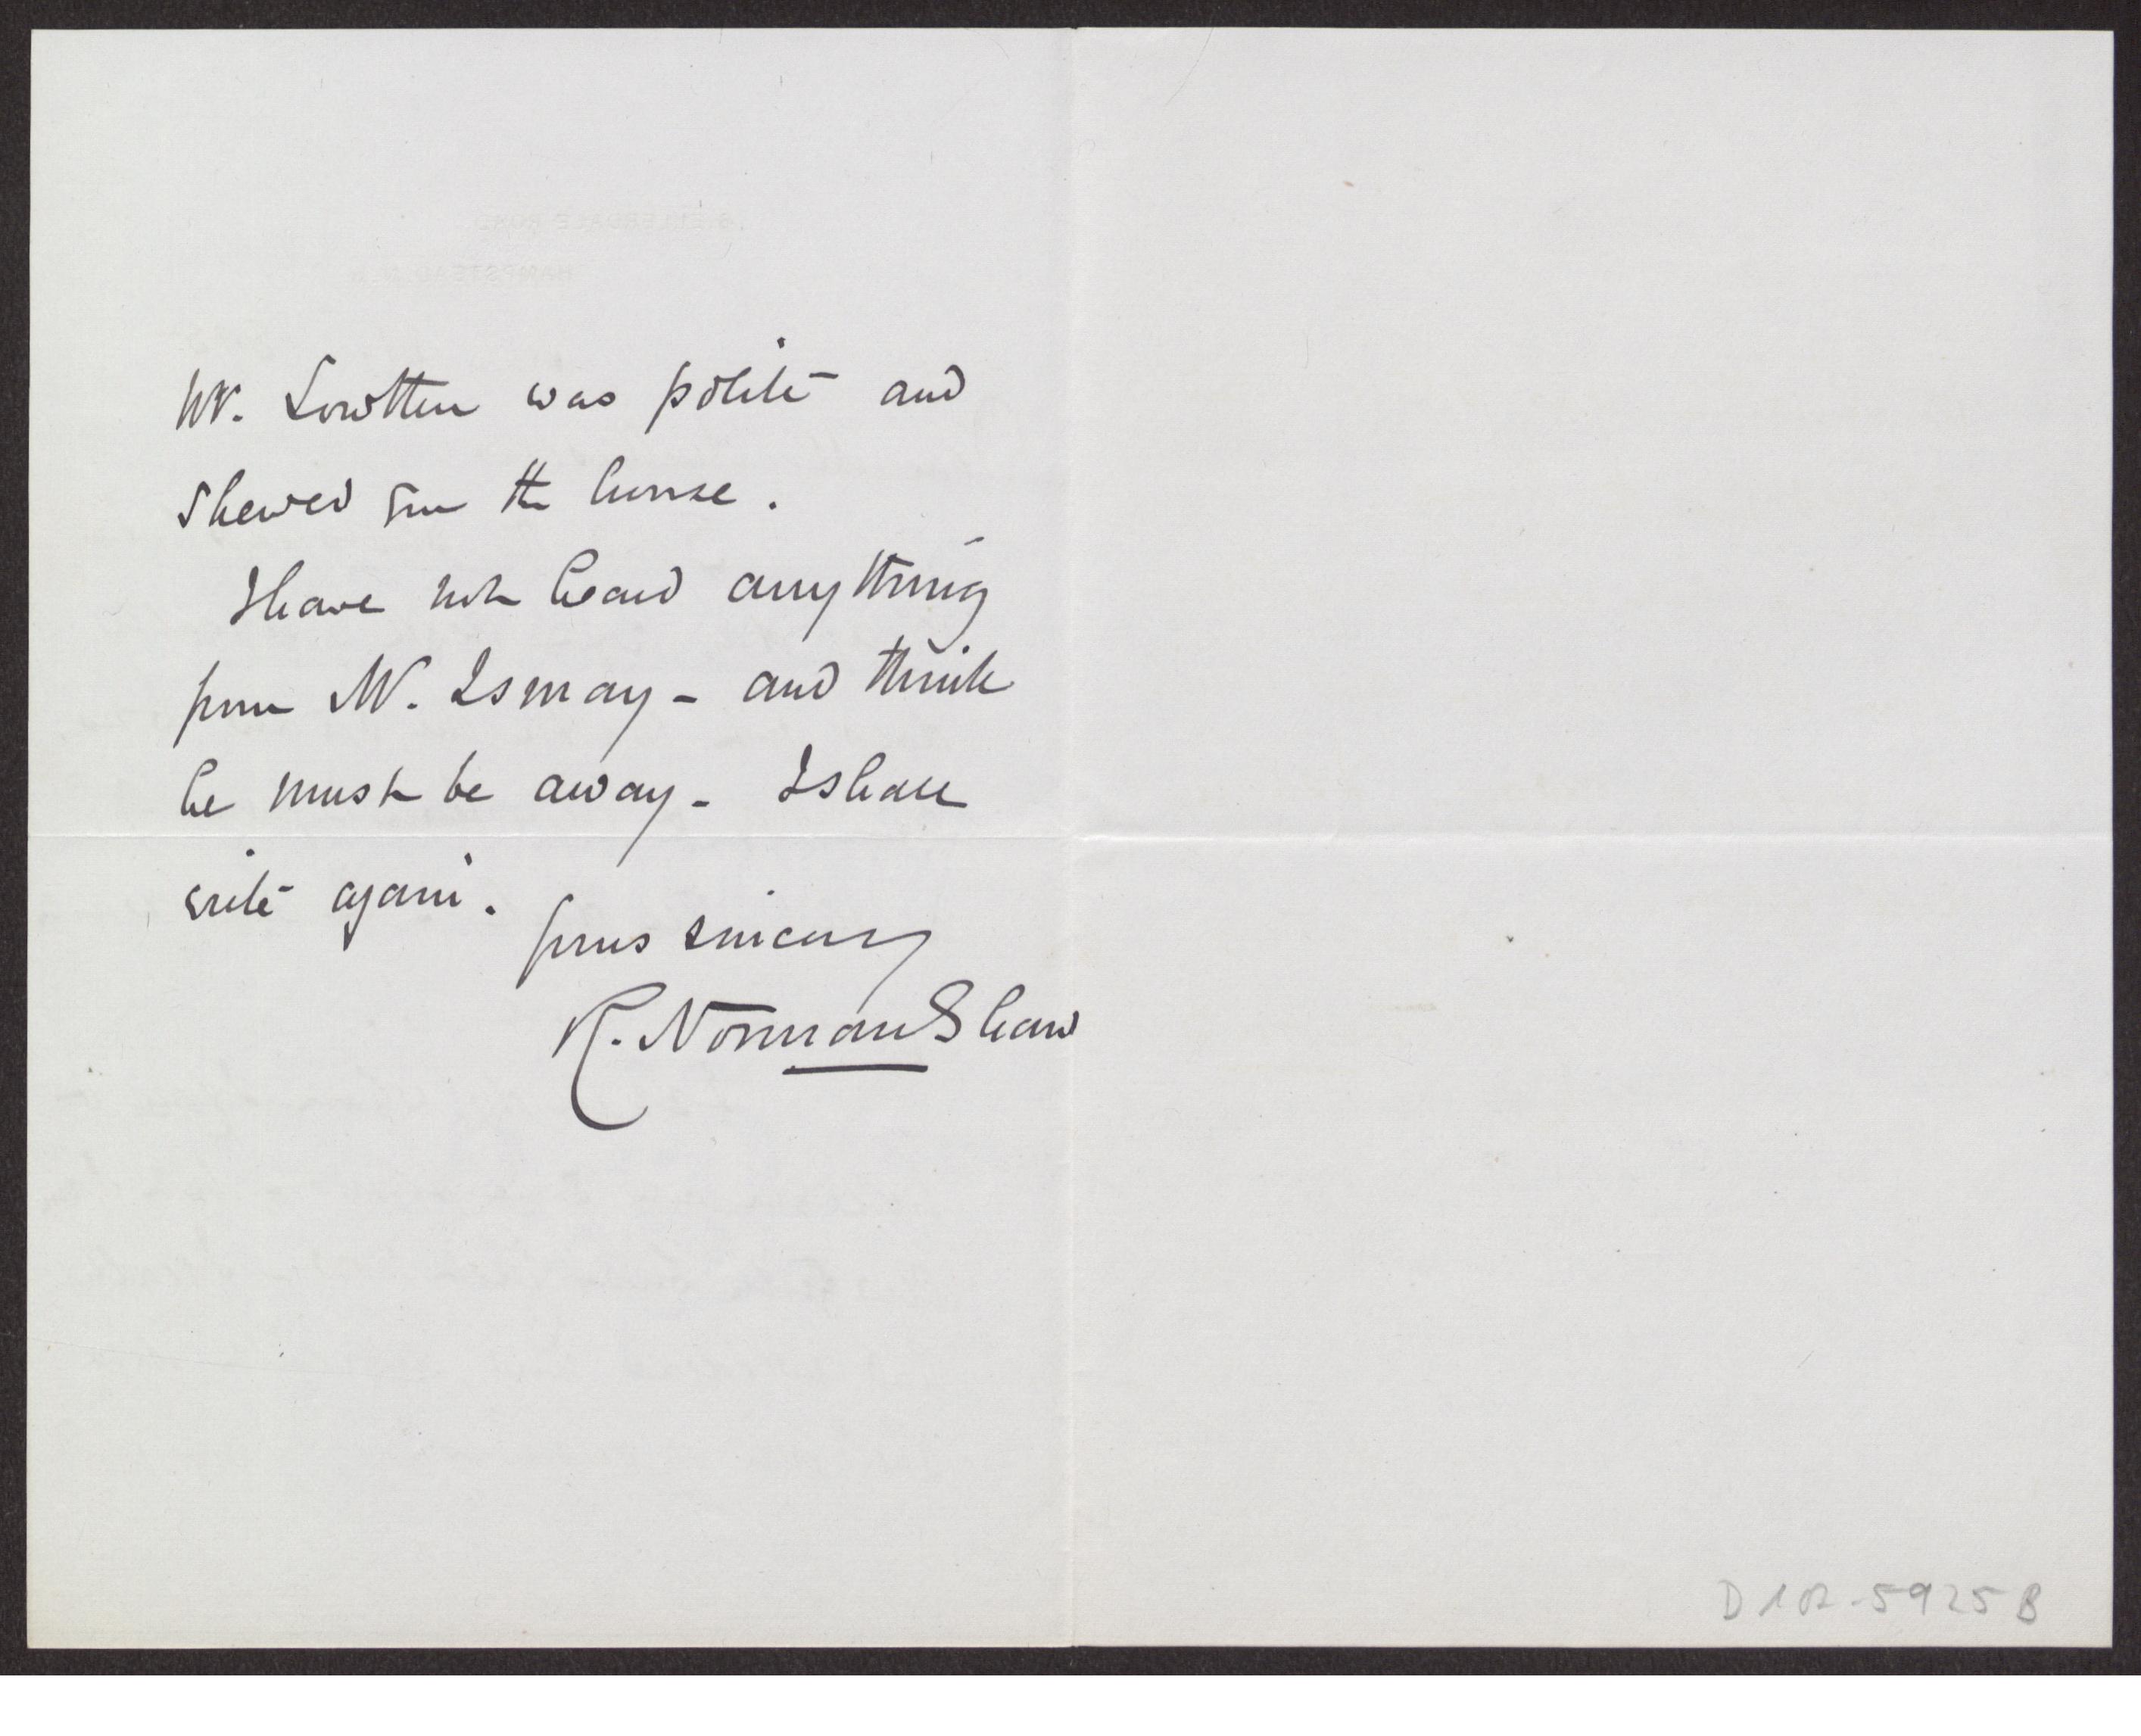 Mr. Lowthen was polite and
shewed me the house.
I have not heard anything
from Mr. Ismay - and think
he must be away - I shall
write again.
Yours sincerely
R. Norman Shaw
D 102-5925 B